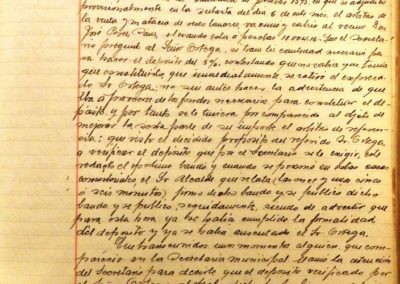 provisionalmente en la subasta del dia 6 de este mes, el arbitrio de
la renta y matacio de reses lanares, vacuno y cabrio al vecino Don
José Pérez Sanz,
pregunté al Señor Ortega, si traia la cantidad necesaria pa-
ra hacer el deposito del 5%, contestando que no sabia que tenia
que constituirlo, que inmediatamente se retiró el expresa-
do Sr. Ortega; no sin antes hacer la advertencia de que
iba a proveerse de los fondos necesarios para constituir el de-
pósito, y por tanto se le tuviera por comparecido al objeto de
mejorar la sexta parte de su importe el arbitrio de referen-
cia; que visto el decidido propósito del referido Sr. Ortega
a verificar el deposito que por el Secretario se le exigia, este
redactó el oportuno bando, y cuando se personó en estas casas
consistoriales el Sr. Alcalde que relata (las once y unos cinco
ó seis minutos) firmó dicho bando y se publicó dicho
bando y se publicó seguidamente, siendo de advertir que
para esta hora ya se habia cumplido la formalidad
del deposito y ya se habia ausentado el Sr. Ortega.
Que transcurridos unos momentos alguien que com-
pareció en la Secretaria municipal llamó la atención
del Secretario para decirle que el deposito verificado por